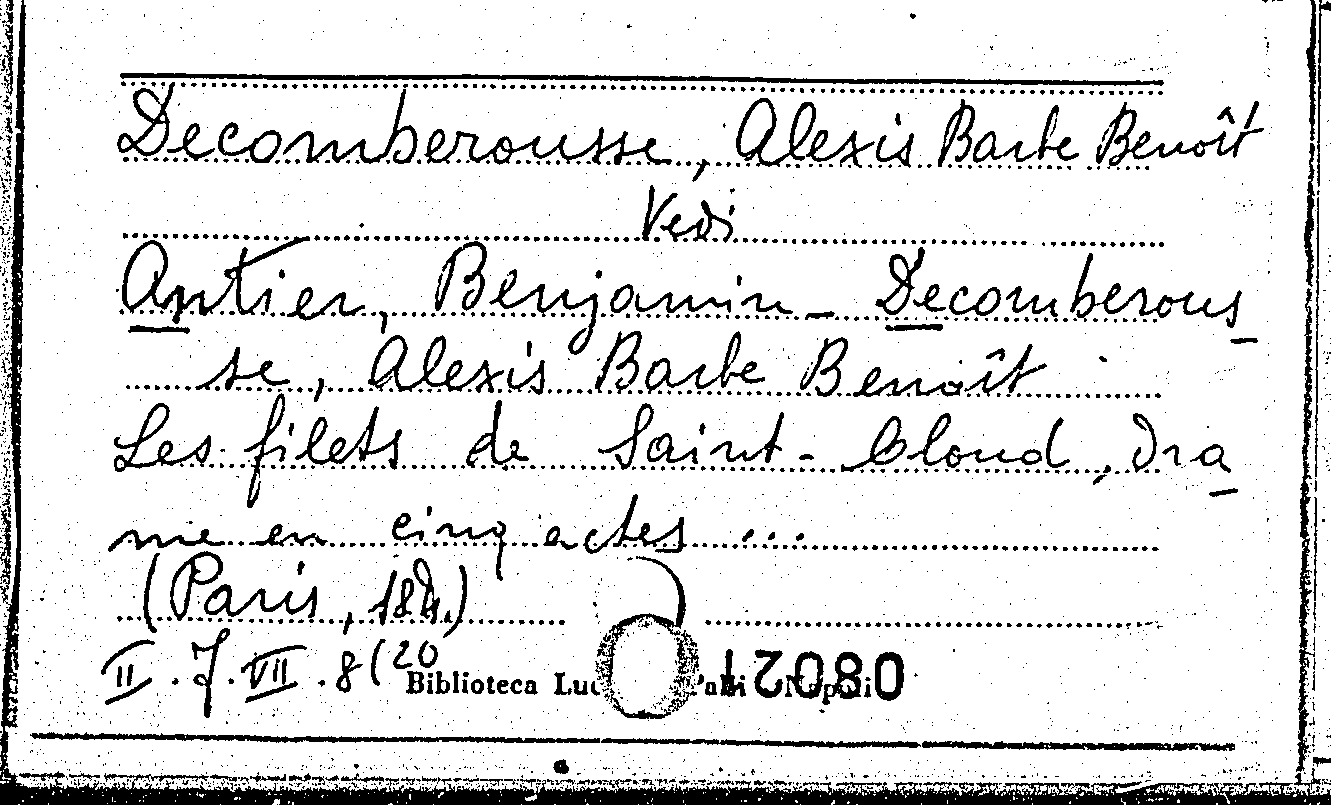 Decomberousse, Alexis Barbe Benoît
Vedi
Antier, Benjamin - Decomberous_
se, Alexis Barbe Benoît
Les filets de Saint-Cloud, dra_
me en cinq actes ...
(Paris, 184.)
II. J. VII. 8(20
Biblioteca Luc 08021